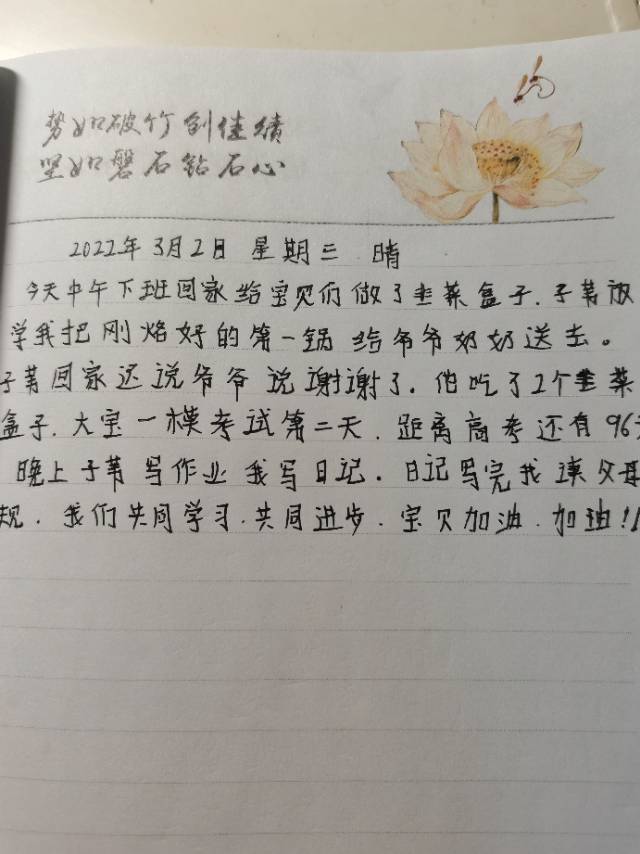 势如破竹创佳绩
坚如磐石钻石心
2022年3月2日 星期三 晴
今天中午下班回家给宝贝们做了韭菜盒子.子苇放
学我把刚烙好的第一锅给爷爷奶奶送去。
子苇回家还说爷爷说谢谢了.他吃了2个韭菜
盒子.大宝一模考试第二天.距离高考还有96
晚上子苇写作业我写日记.日记写完我读父母
规.我们共同学习.共同进步.宝贝加油.加油!!